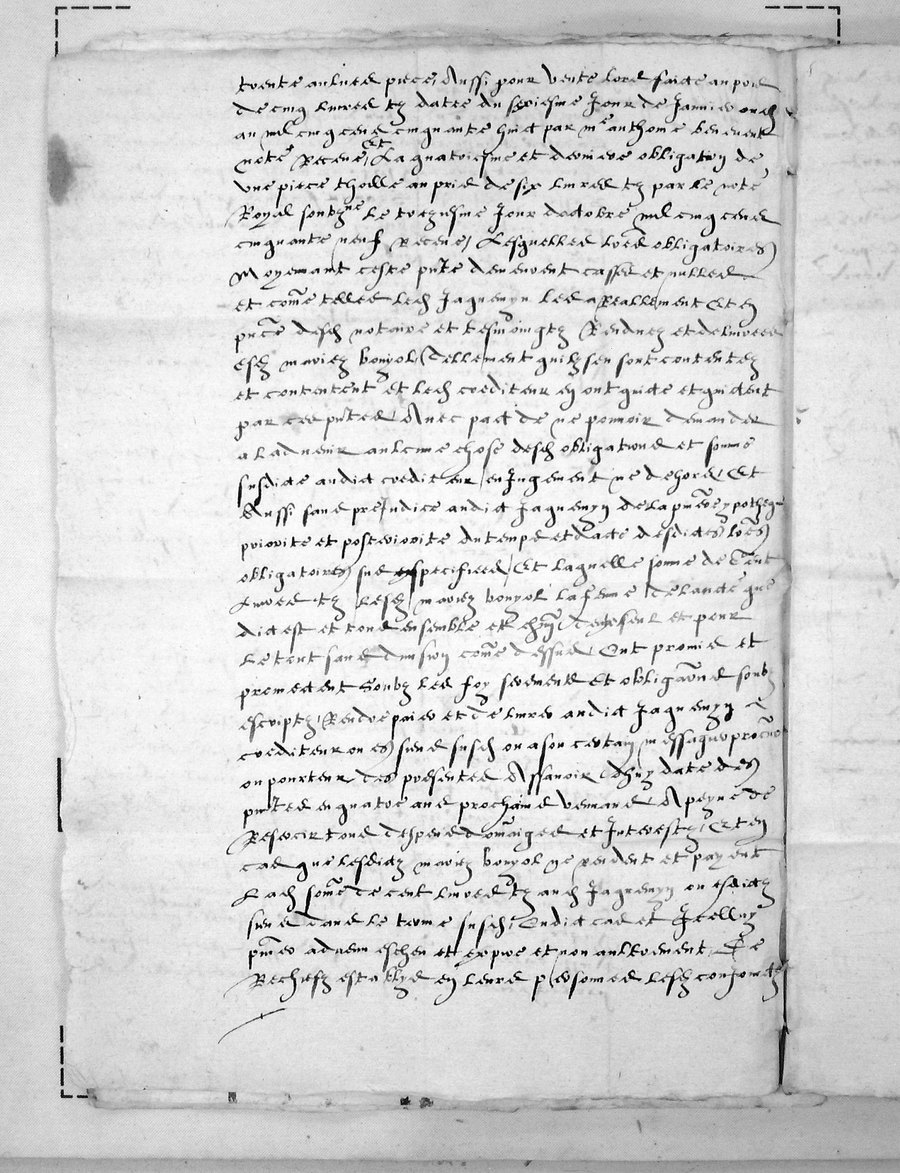 trente aulnes piece, Aussi pour vente lors faicte au pris
de cinq livres tz datte du sixiesme Jour de Janvier oud
an mil cinq cens cinquante huict par me anthoine benevent
note Recene, et La quatriesme et derniere obligation de
une piece tholle au pris de six livres tz par le note
Royal soubzne Le treziesme Jour doctobre mil cinq cens
cinquante neuf Recene, Lesquelles lres obligatoires
Moyennant ceste pnte demeurent casses et nulles
et come telles led Jaquemyn les a Reallement Et en
pnce desd notaire et tesmoingtz Rendues et delivrees
esd mariez bonyol, Tellement quilz sen sont contentez
et contentent et led crediteur en ont quicte et quictent
par ces pntes, Avec pact de ne pouvoir demander
a ladvenir aulcune chose desd obligations et some
susdicte audict crediteur, en Jugement ne dehors, Et
Aussi sans prejudice audict Jaquemyn de la pmiere ypotheque
priorite et posteriorite du temps et dacte desdictes lres
obligatoires sus specifiees, Et laquelle some de Cent
Livres tz Lesd mariez bonyol la feme que
dict est et tous ensemble et chun deulx seul et pour
Le tout sans division come dessus, Ont promis et
promectent Soubz les foy serements et obligaons soubz
escriptz, Rendre paier et delivrer audict Jaquemyn
crediteur ou es siens susd ou a son certain messagier procur
ou pourteur des presentes Assavoir dhuy datte des
pntes en quatre ans prochains venans, A peyne de
Resercir tous despens domaiges et Interestz, Et en
cas que lesdictz mariez bonyol ne Rendent et payent
Lad some de cent livres tz aud Jaquemyn ou esdictz
siens dans le terme susd, Oudict cas et Icelluy
pmier advenu escheu et expire et non aultrement, De
Rechefz establys en leurs personnes lesd conjoinctz